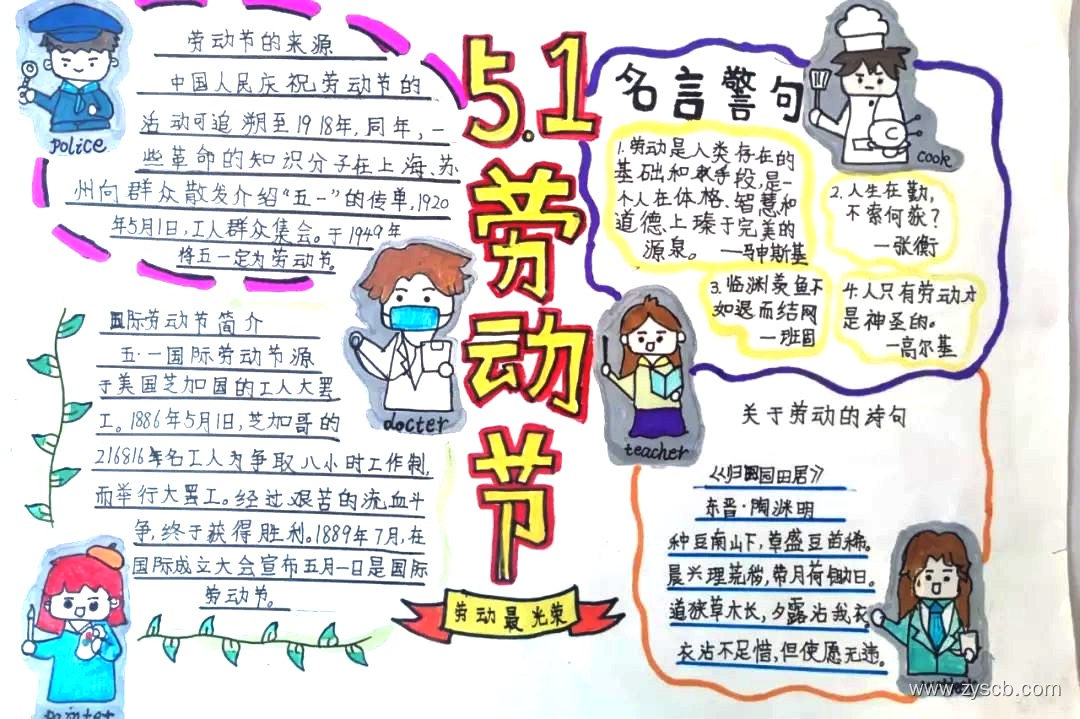 劳动节的来源
中国人民庆祝劳动节的
活动可追朔至1918年,同年,一
些革命的知识分子在上海、苏
州向群众散发介绍“五一”的传单,1920
年5月1日,工人群众集会。于1949年
将五一定为劳动节。
police
国际劳动节简介
五·一国际劳动节源
于美国芝加国的工人大罢
工。1886年5月1日,芝加哥的
216816名工人为争取八小时工作制,
而举行大罢工。经过艰苦的流血斗
争,终于获得胜利。1889年7月,在
国际成立大会宣布五月一日是国际
劳动节。
painter
docter
5.1
劳
动
节
劳动最光荣
名言警句
1.劳动是人类存在的
基础和手段,是一
个人在体格、智慧和
道德上臻于完美的
源泉。 —马申斯基
2.人生在勤,
不索何获?
—张衡
3.临渊羡鱼不
如退而结网
—班固
4.人只有劳动才
是神圣的。
—高尔基
cook
teacher
关于劳动的诗句
《归园田居》
东晋·陶渊明
种豆南山下,草盛豆苗稀。
晨兴理荒秽,带月荷锄日。
道狭草木长,夕露沾我衣
衣沾不足惜,但使愿无违。
www.zyscb.com